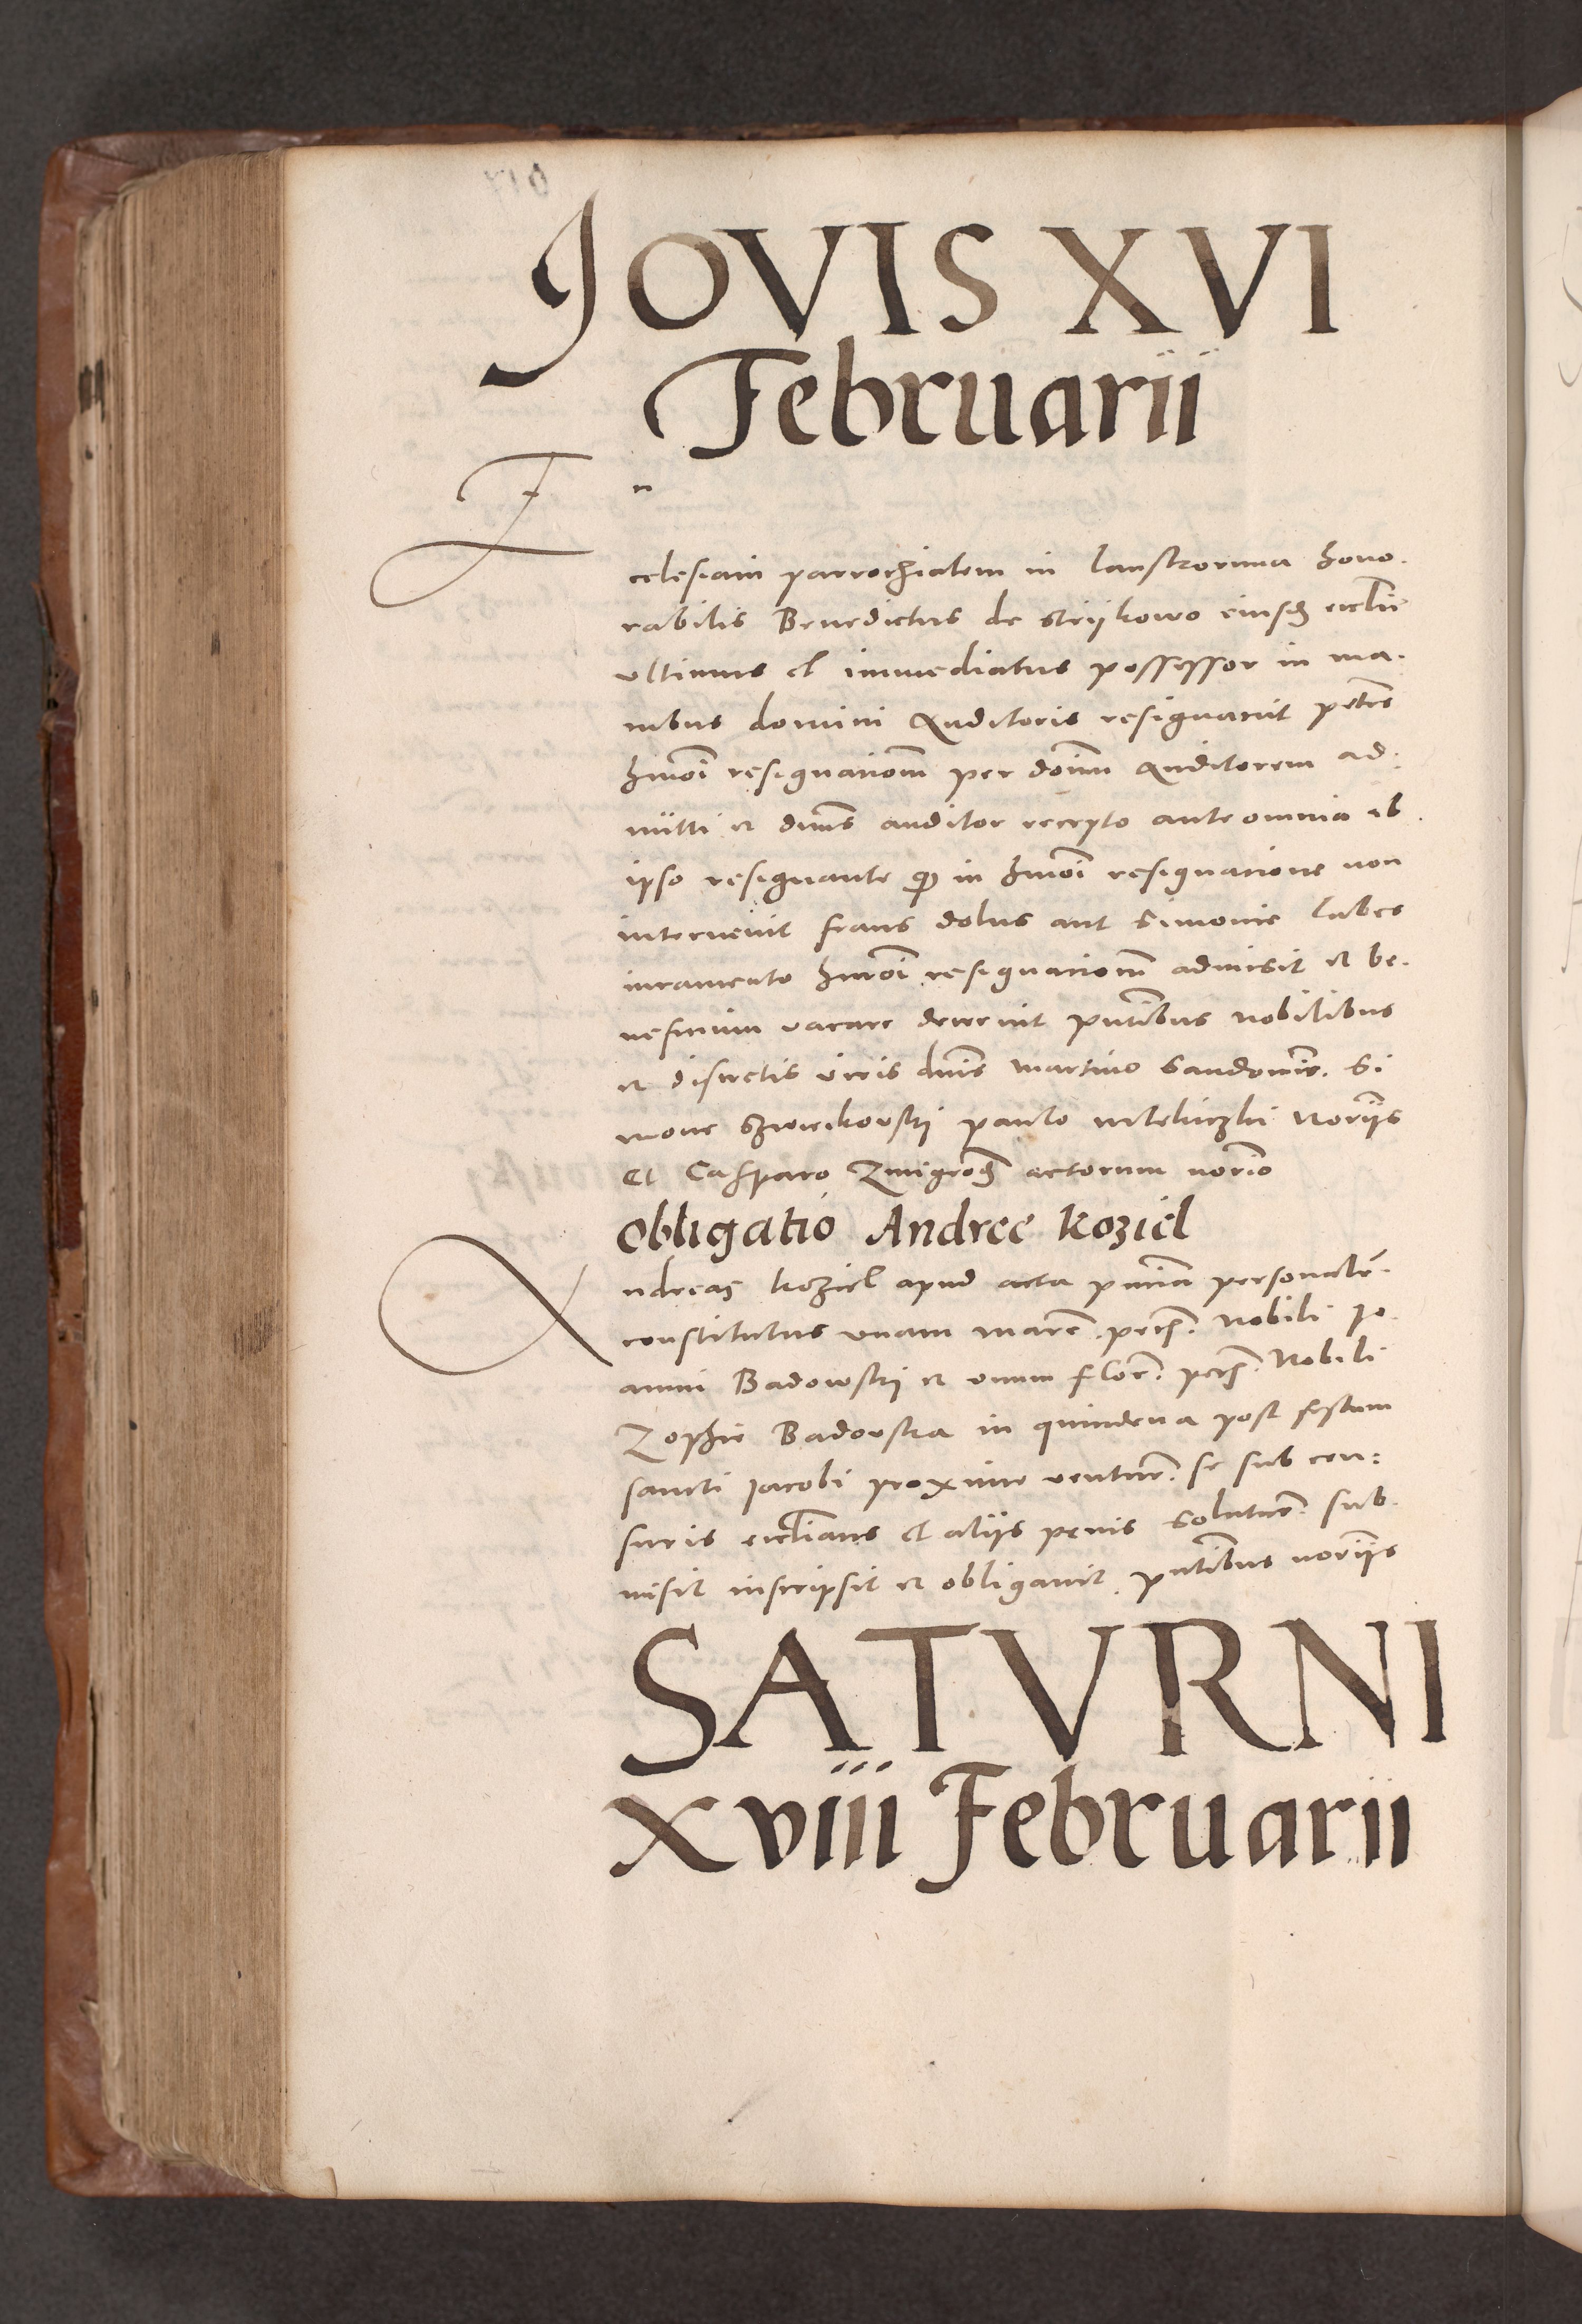 JOVIS XVI
Februarii
E n
cclesiam parrochialem in lanskoruna hono.
rabilis Benedictus de Strijkowo eiusd eccl̄ie
ultimus et immediatus possessor in ma.
nibus domini Auditoris resignavit petēs
hmōi resignationē per dōnm Auditorem ad.
mitti et dn̄us auditor recepto ante omnia ab
ipso resignante q in hmōi resignatione non
intervenit fraus dolus aut Simonie labes
iuramento hmōi resignationē admisit et be.
neficium vacare decrevit pn̄tibus nobilibus
et discretis viris dn̄is martino Sandomir. Si
mone paulo Norijs
et Casparo Zmigrod actorum nor̄io
Obligatio Andree Koziel
Andreas koziel apud acta pn̄cia personalē.
constitutus unam marc̄. pecs. Nobili Jo.
anni Badowskij et unum flor. pecs. Nobili
Zophie Badowska in quindena post festum
sancti Jacobi proxime ventur. se sub cen:
suris eccl̄iasticis et alijs penis solutur. sub
misit inscripsit et obligavit. pn̄tibus norijs
SATVRNI
xviii Februarii